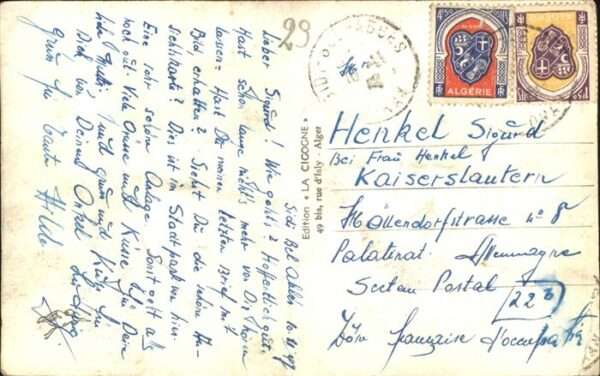 29
SIDI BEL ABBÈS
ALGÉRIE
Sidi Bel Abbès
Lieber Sigurd! Wie geht's? Hoffentlich gut.
Hast schon lange nichts mehr von Dir hören
lassen. Hast Du meinen letzten Brief mit
Bild erhalten? Siehst Du die schöne An-
sichtskarte? Dies ist im Stadtpark von hier.
Eine sehr schöne Anlage. Sonst geht es
noch gut. Viel Grüsse und Küsse für Deine
liebe Mutti und
Dich von Deinem Onkel
Tante Hilde
Edition « LA CIGOGNE »
49 bis, rue d'Isly - Alger
Henkel Sigurd
Bei Frau Henkel
Kaiserslautern
Möllendorfstrasse no 8
Palatinat. Allemagne
Secteur Postal
22b
Zone française d'occupation